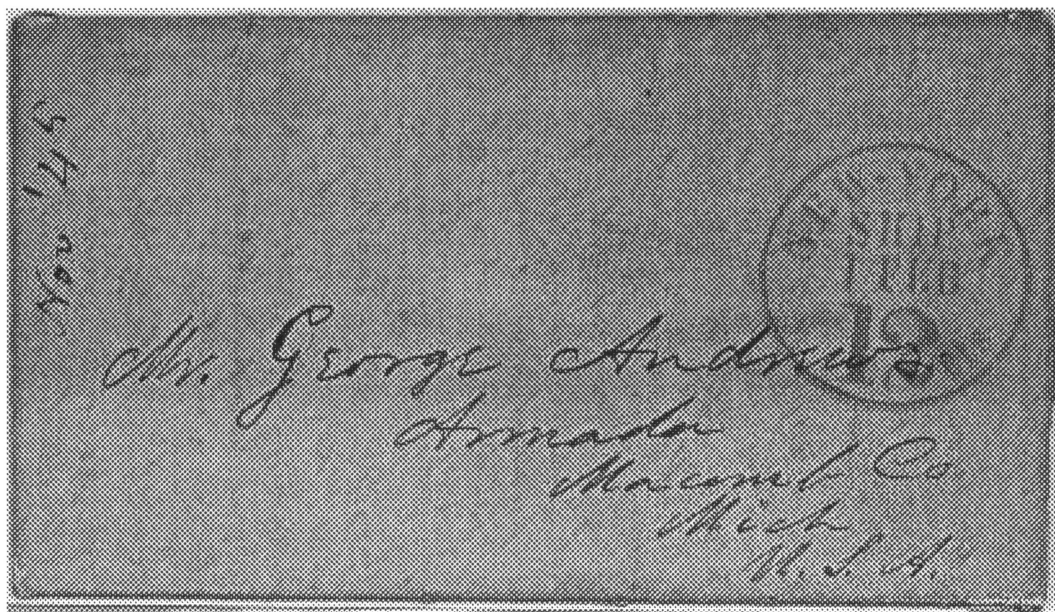 No 145
NEW-YORK
12
Mr. George Andrews.
Armada
Macomb Co
Mich
U. S. A.